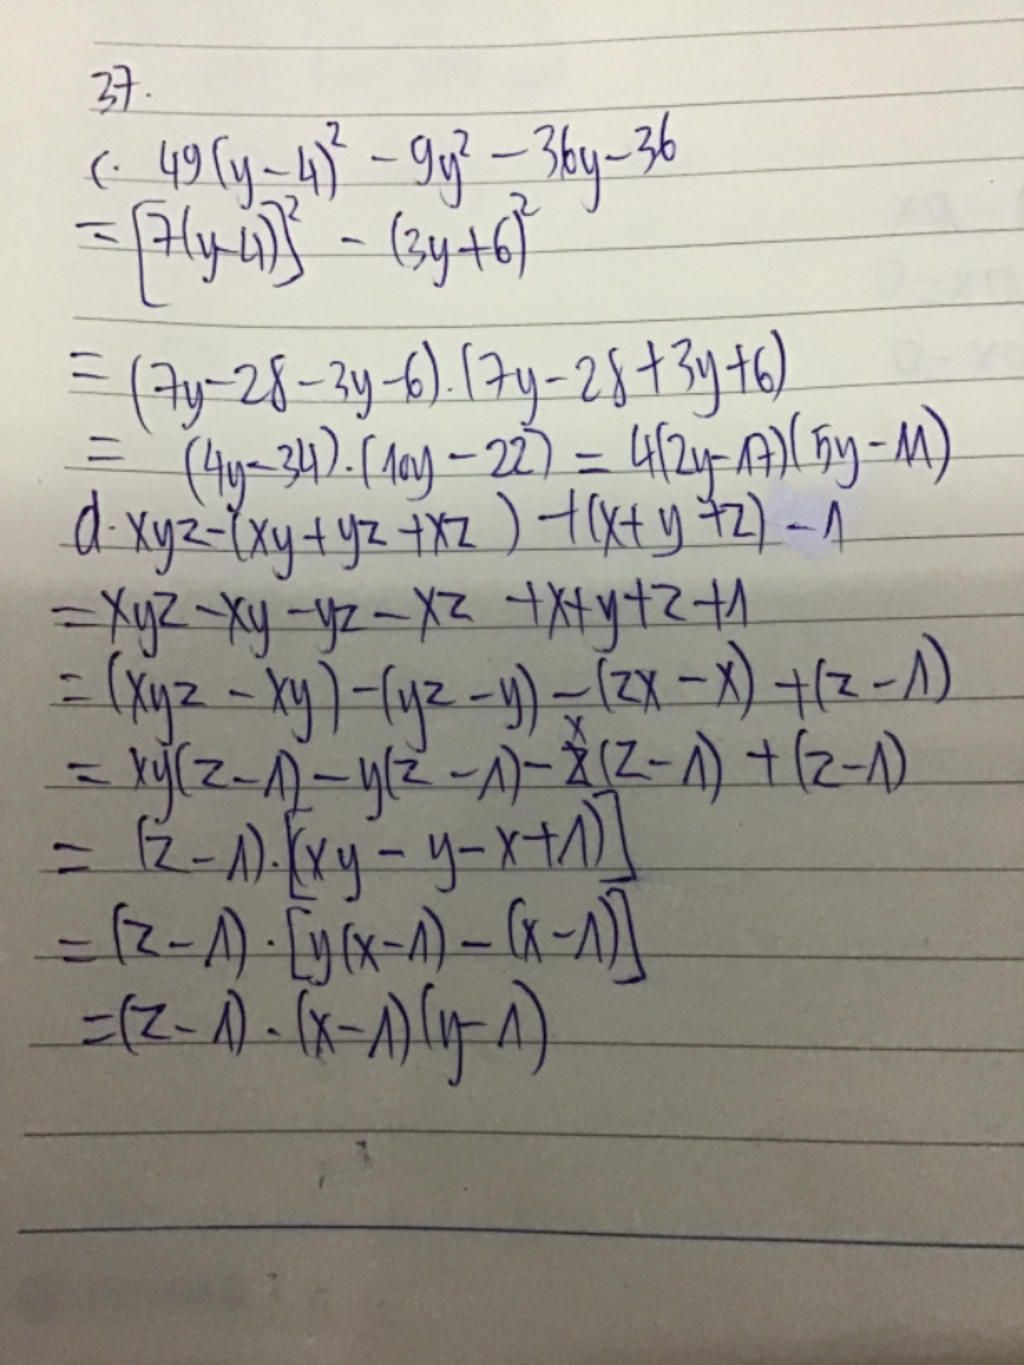 37.
c. 49(y-4)² - 9y² - 36y - 36
= [7(y-4)]² - (3y+6)²
= (7y-28-3y-6).(7y-28+3y+6)
= (4y-34).(10y-22) = 4(2y-17)(5y-11)
d. xyz-(xy+yz+xz) +(x+y+z) -1
= xyz -xy -yz - xz +x+y+z+1
= (xyz - xy) -(yz -y) -(zx -x) +(z-1)
= xy(z-1) -y(z-1) - x(z-1) + (z-1)
= (z-1).[(xy - y-x+1)]
= (z-1).[y(x-1) - (x-1)]
=(z-1).(x-1)(y-1)